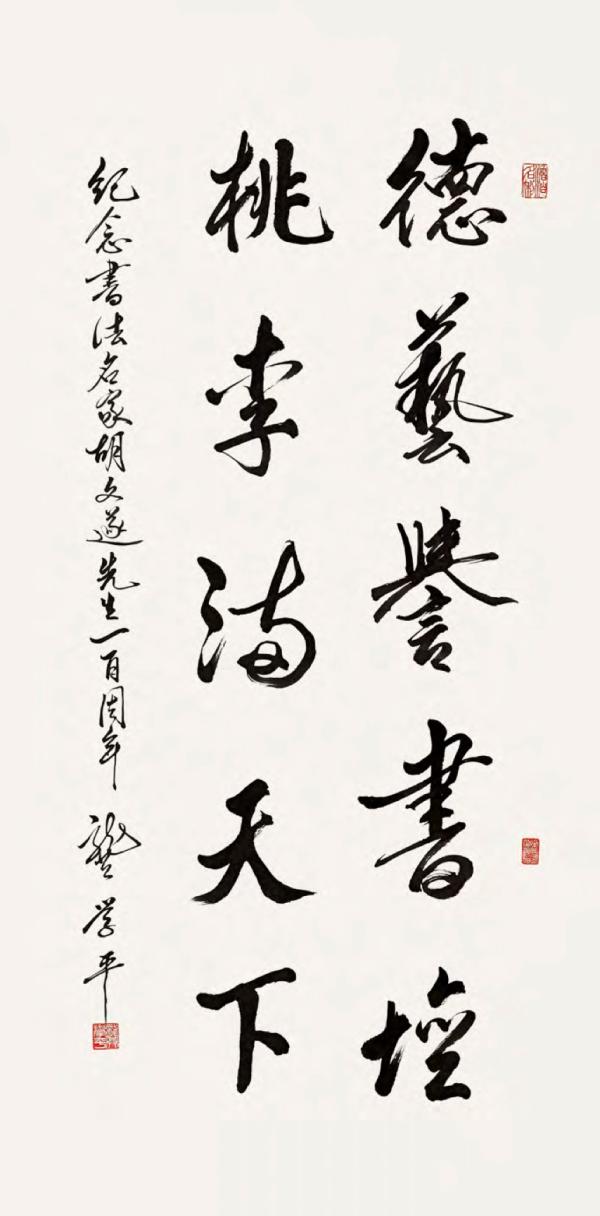 德藝譽書壇
桃李满天下
纪念书法名家胡文遂先生一百周年
龚学平